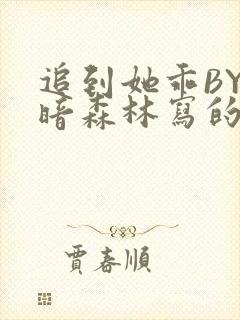 追到她乖BY
暗森林寫的
賈春順